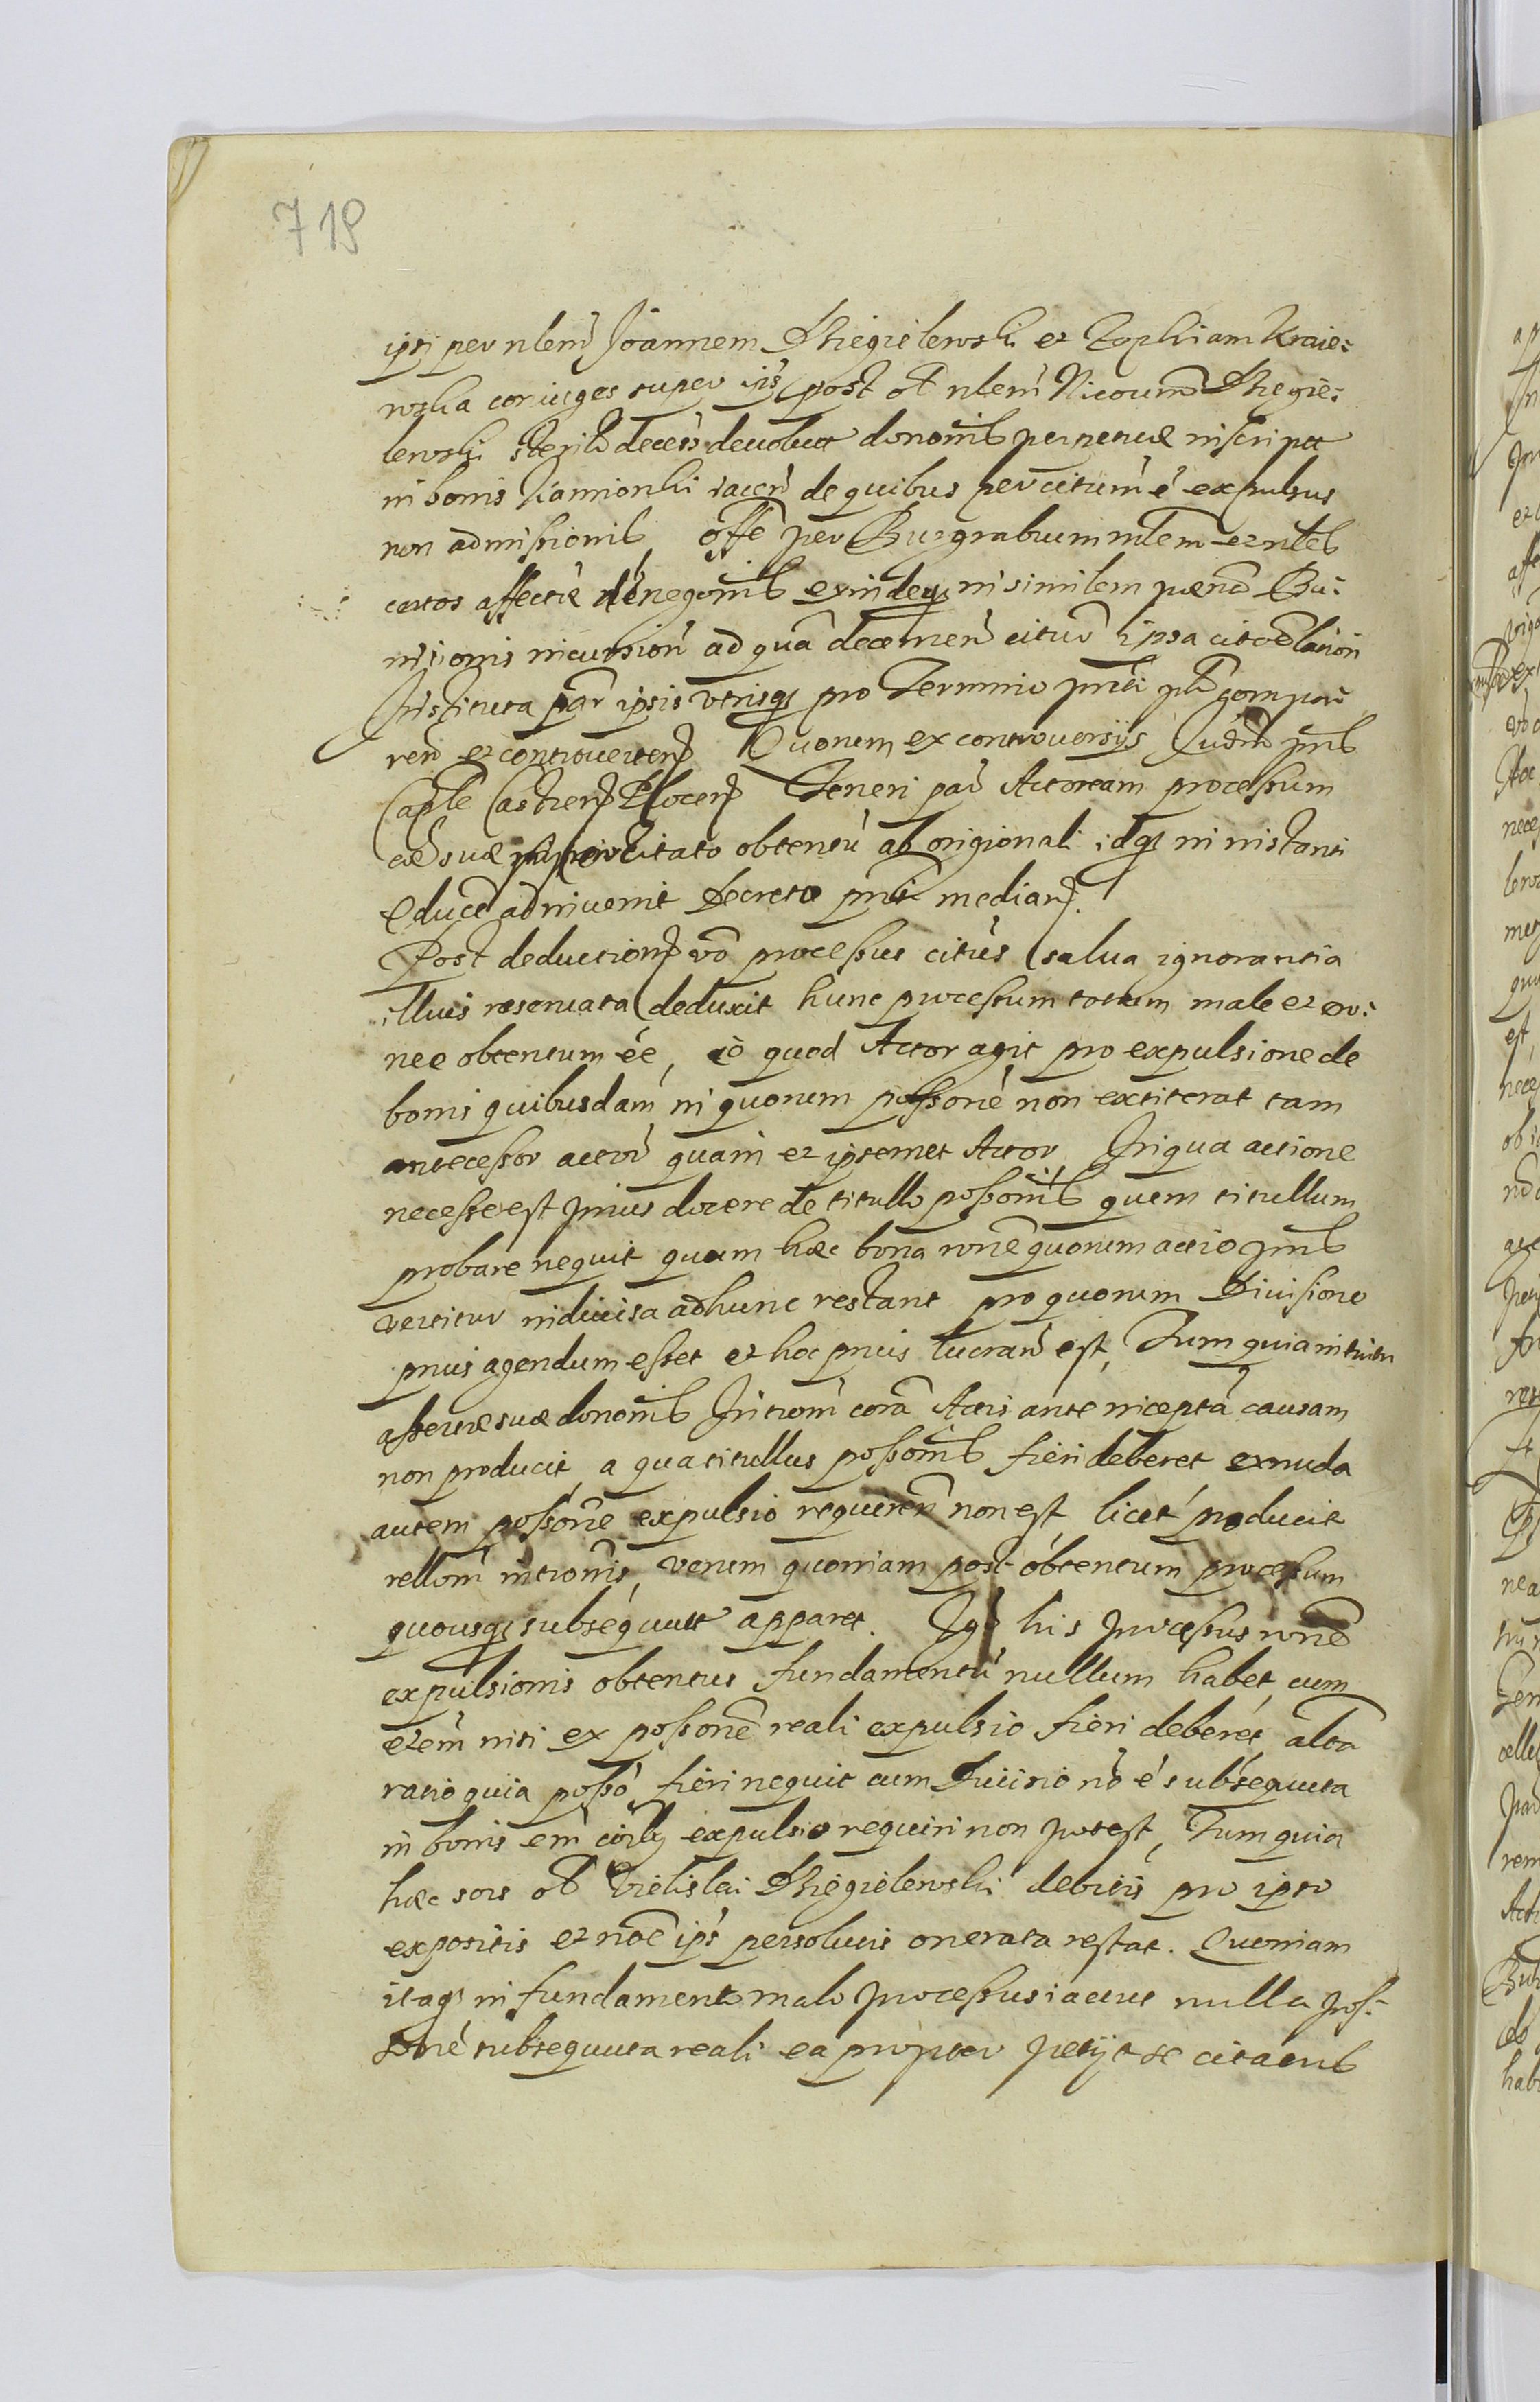 719
ipsi per nlem Joannem Kiegielewski et Zophiam Kraie:
wska coniuges super ips post ol nlem Nicoum Kiegie:
lewski sterilr decess devolut donomis perpetuæ inscript
in bonis Kamionki iacen de quibus per citum é expulsus
non admissionis offe per Burgrabium mlem et nles
certos affectæ denegomis exindeq in similem pænã Ba:
nisionis incursion ad quã decernen citur ipsa citoe latiori
Instituta par ipsis utrisq pro Termino pnti plr compa:
ren et controverten Quorum ex controversijs Judm pns
Caple Castren Plocen Teneri par Actoream processum
cæ suæ citato obtentu ab origionali idq in instanti
educe adinvenit Decreto pnti median
Post deduction vo processus citus (salva ignorantia
illius reservata) deduxit hunc processum totum male et erro:
nee obtentum ée, eo quod Actor agit pro expulsione de
bonis quibusdam in quorum possone non extiterat tam
antecessor actor quam et ipsemet Actor In qua actione
necesse est prius docere de titullo possomis quem titullum
probare nequit quum hæc bona rone quorum actio pns
vertitur indivisa adhunc restant pro quorum Divisione
prius agendum esset et hoc prius lucran est, Tum quia
assertæ suæ donomis Introm corã Actis ante inceptã causam
non producit a qua titullus possomis fieri deberet ex nuda
autem possone expulsio requiren non est, licet producit
rellom intromis, verum quoniam post obtentum processum
quousq subsequut apparet. Igr his processus rone
expulsionis obtentus fundamentu nullum habet cum
etem nisi ex possone reali expulsio fieri deberet alta
ratio quia posso fieri nequit cum Divisio no é subsequuta
in bonis em expulsio requiri non potest, Tum quia
hæc sors ol Vielislai Kiegielewski debitis pro ipso
expositis et noe ips persolutis onerata restat. Quoniam
itaq in fundamento malo processus iaceret nulla pos:
sone subsequuta reali ea propter petijt se a citaenis